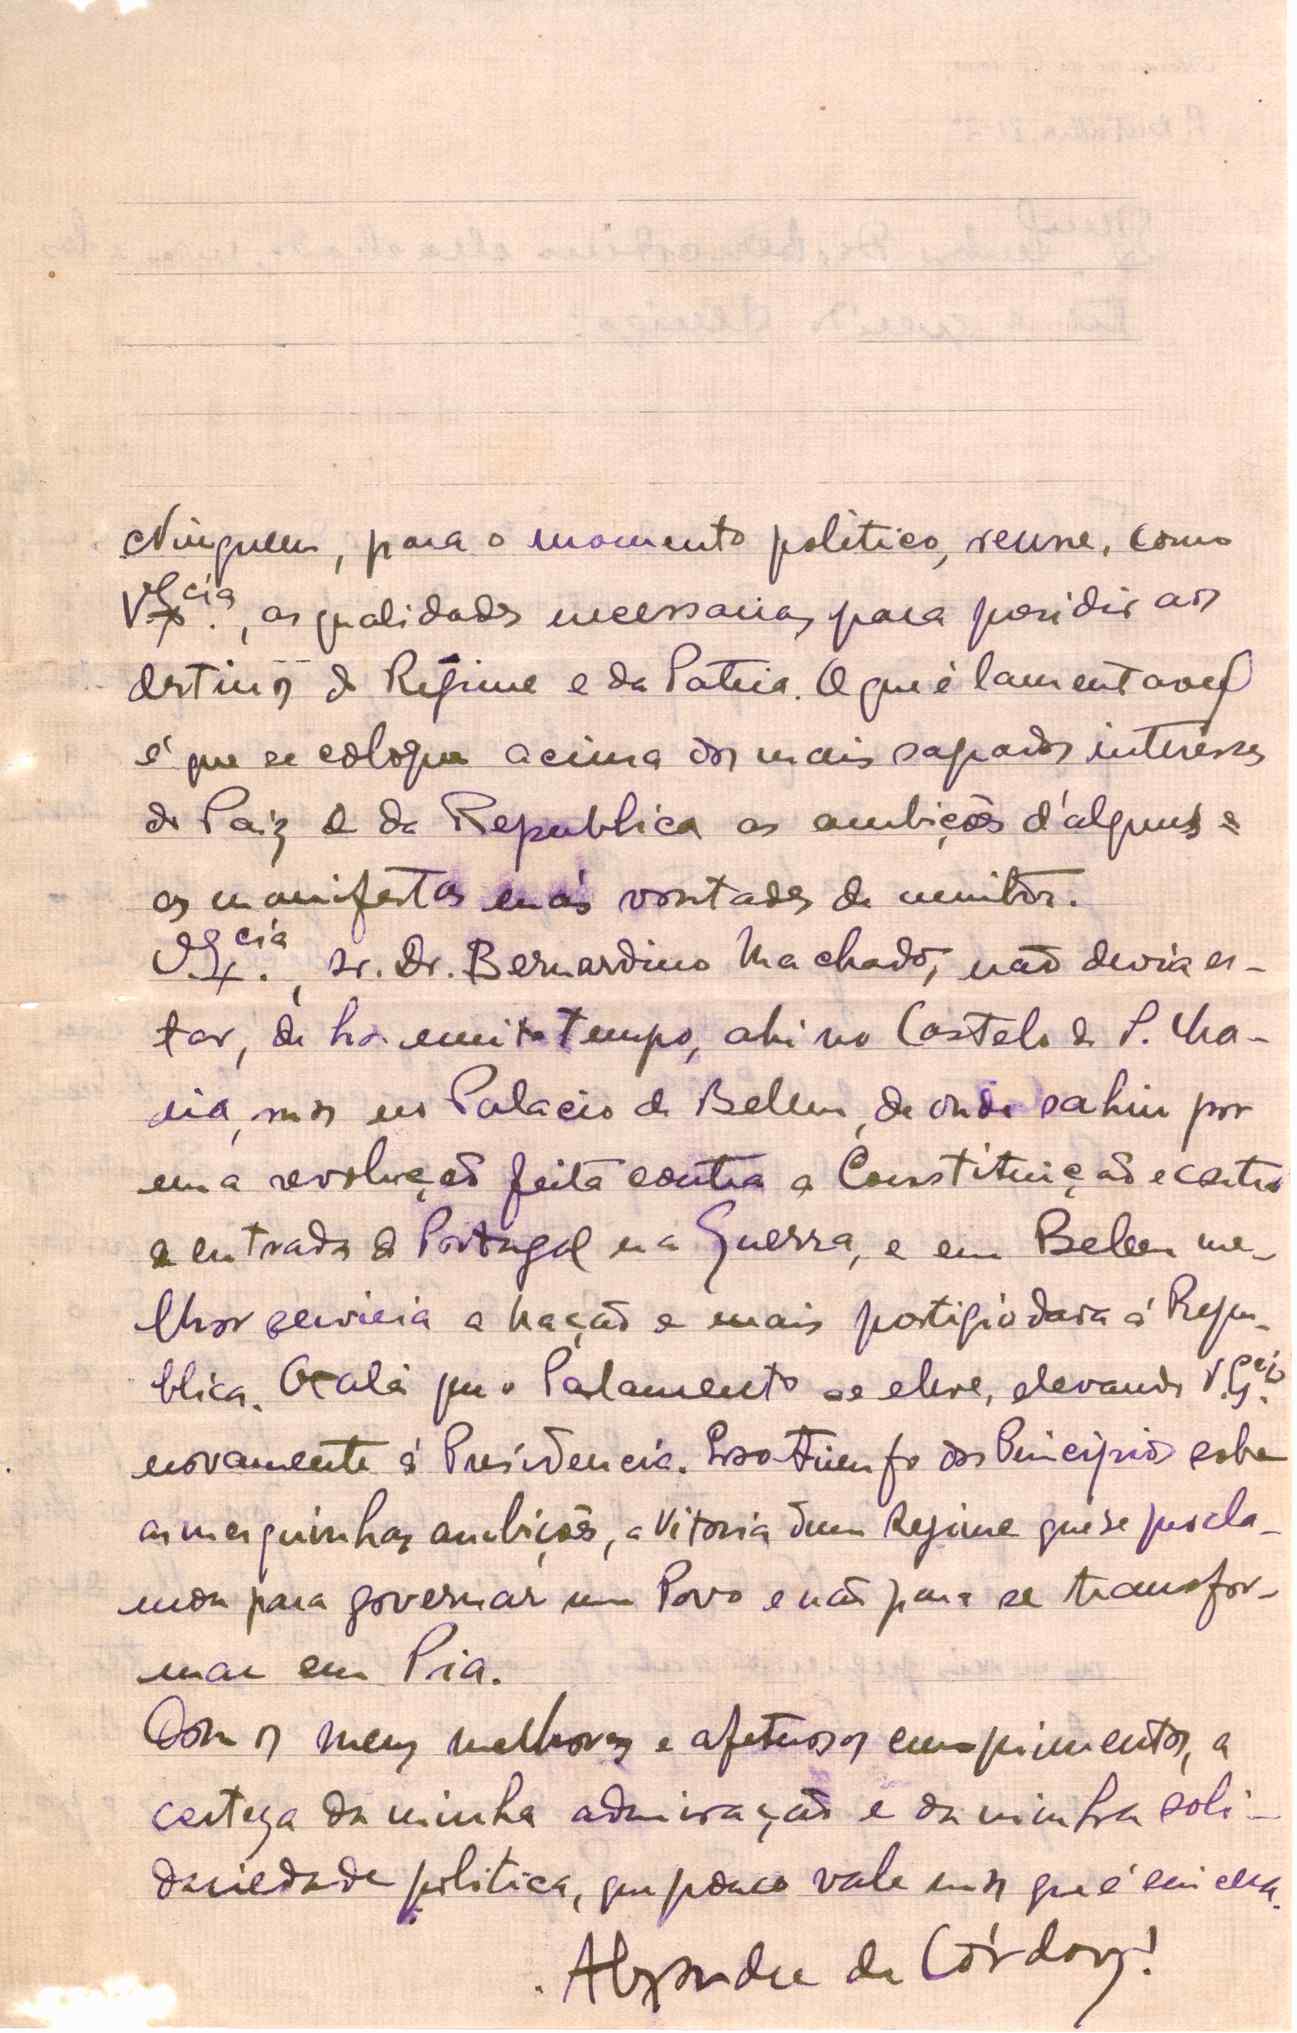 Ninguem, para o momento politico, reune, como
V. Ex.cia, as qualidades necessarias para presidir aos
destinos do Regime e da Patria. O que é lamentavel
é que se coloque acima dos mais sagrados interesses
do Paiz e da Republica as ambições d'alguns e
as manifestas más vontades de muitos.
V. Ex.cia, sr. Dr. Bernardino Machado, não devia es-
tar, de ha muito tempo, ahi no Castelo de S. Ma-
ria, mas no Palacio de Bellem, de onde sahiu por
uma revolução feita contra a Constituição e contra
a entrada de Portugal na Guerra, e em Belem me-
lhor serviria a Nação e mais prestigio dara á Repu-
blica. Oxalá que o Parlamento se eleve, elevando V. Ex.cia
novamente á Presidencia. Isso triunfo dos Principios sobre
as mesquinhas ambições, a Vitoria dum Regime que se procla-
mou para governar um Povo e não para se transfor-
mar em Pia.
Com os meus melhores e afetuosos cumprimentos, a
certeza da minha admiração e da minha soli-
dariedade politica, que pouco vale mas que é sincera.
Alexandre de Córdova!